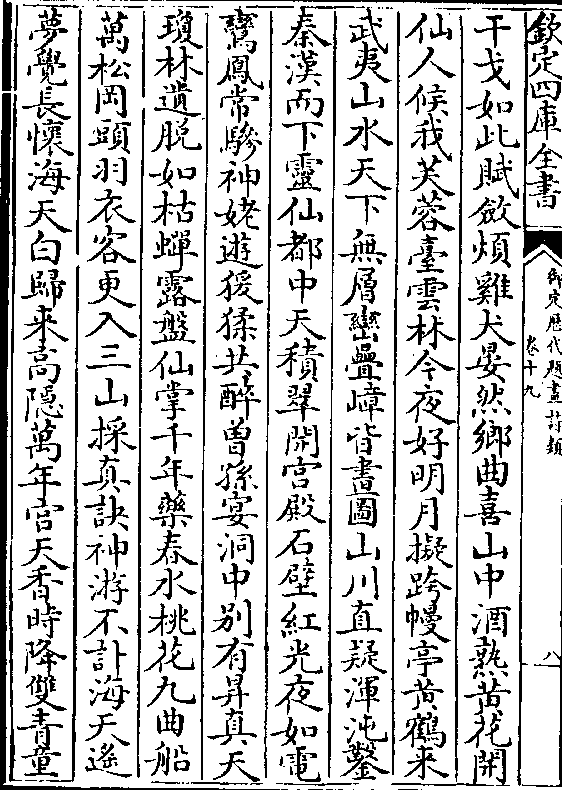 欽定四庫全書
御定歷代題畫詩類
卷十九
八
干戈如此賦斂煩雞犬晏然鄉曲喜山中酒熟黃花開
仙人候我芙蓉臺雲林今夜好明月擬跨幔亭黃鶴來
武夷山水天下無層巒疊嶂皆畫圖山川直疑渾沌鑿
秦漢而下靈仙都中天積翠開宮殿石壁紅光夜如電
鸞鳳常驂神姥遊猨猱共醉曾孫宴洞中别有昇真天
瓊林遺脫如枯蟬露盤仙掌千年藥春水桃花九曲船
萬松岡頭羽衣客更入三山採真訣神游不計海天遙
夢覺長懷海天白歸来高隱萬年宮天香時降雙青童